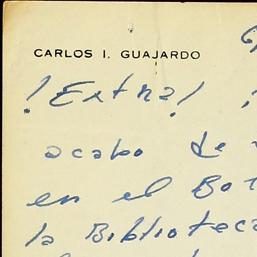 CARLOS I. GUAJARDO
¡Extra!
acabo de
en el Bo
la Biblioteca